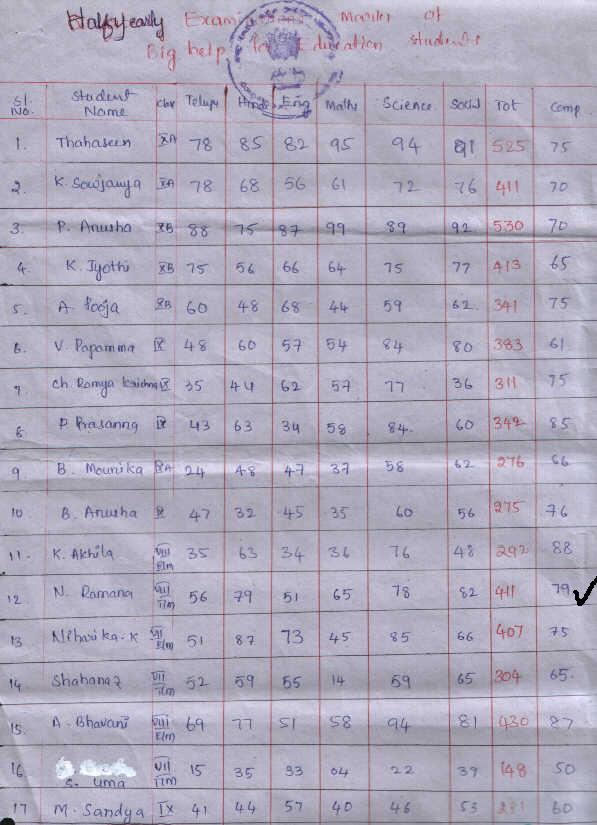 Half yearly Examinations Marks of
Big help for Education students
Sl. No. Student Name Class Telugu Hindi Eng Maths Science Social Tot Comp
1. Thahaseen XA 78 85 82 95 94 91 525 75
2. K. Sowjanya XA 78 68 56 61 72 76 411 70
3. P. Anusha XB 88 75 87 99 89 92 530 70
4. K. Jyothi XB 75 56 66 64 75 77 413 65
5. A. Pooja XB 60 48 68 44 59 62 341 75
6. V. Papamma IX 48 60 57 54 84 80 383 61
7. Ch. Ramya Krishna IX 35 44 62 57 77 36 311 75
8 P Prasanna IX 43 63 34 58 84. 60 342 85
9 B. Mounika IXA 24 48 47 37 58 62 276 66
10 B. Anusha IX 47 32 45 35 60 56 275 76
11. K. Akhila VIII E/m 35 63 34 36 76 48 292 88
12. N. Ramana VII T/m 56 79 51 65 78 82 411 79
13 Niharika. K VII E/m 51 87 73 45 85 66 407 75
14 Shahanaz VII T/m 52 59 55 14 59 65 304 65.
15. A. Bhavani VIII E/m 69 77 51 58 94 81 430 87
16 S. Uma VII T/m 15 35 33 04 22 39 148 50
17 M. Sandya IX 41 44 57 40 46 53 281 60